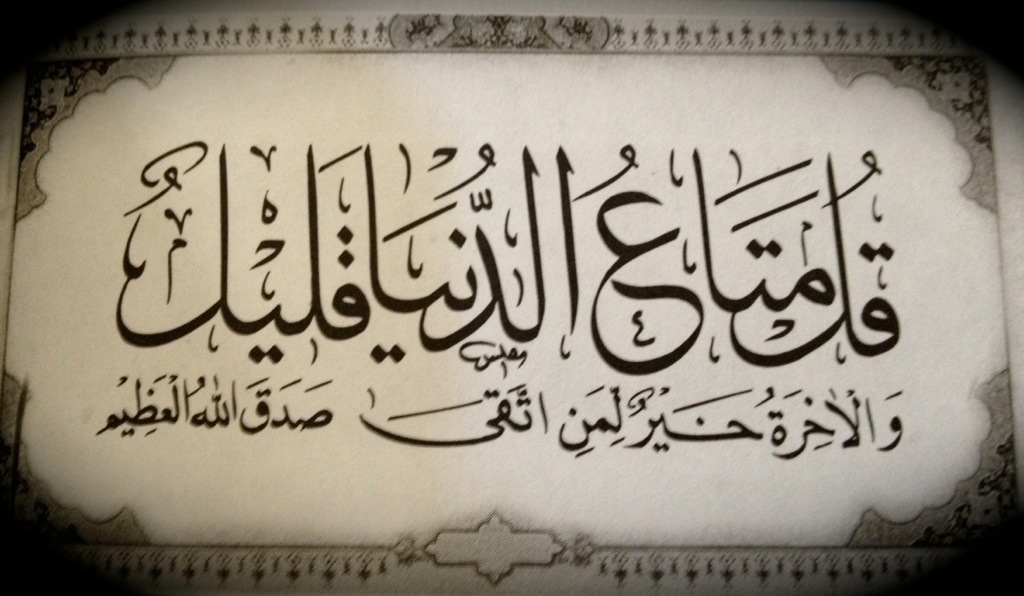 قُلْ مَتَاعُ الدُّنْيَا قَلِيْلٌ
وَالْاٰخِرَةُ خَيْرٌ لِّمَنِ اتَّقٰى صَدَقَ اللهُ الْعَظِيْم